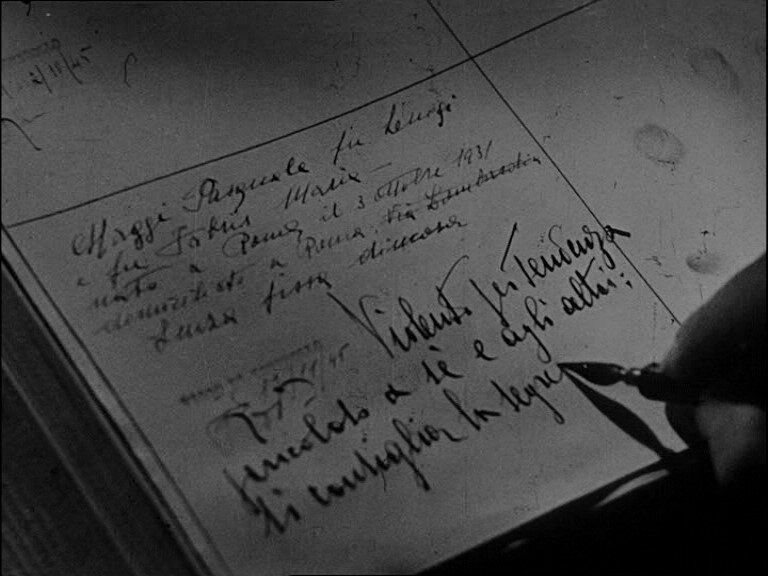 2/11/45
Maggi Pasquale fu Luigi
e fu Maria
nato a Roma il 3 ottobre 1931
domiciliato a Roma Via Lombardia
Senza fissa dimora
12/11/45
Violento per tendenza
pericoloso a sè e agli altri:
Si consiglia la segre